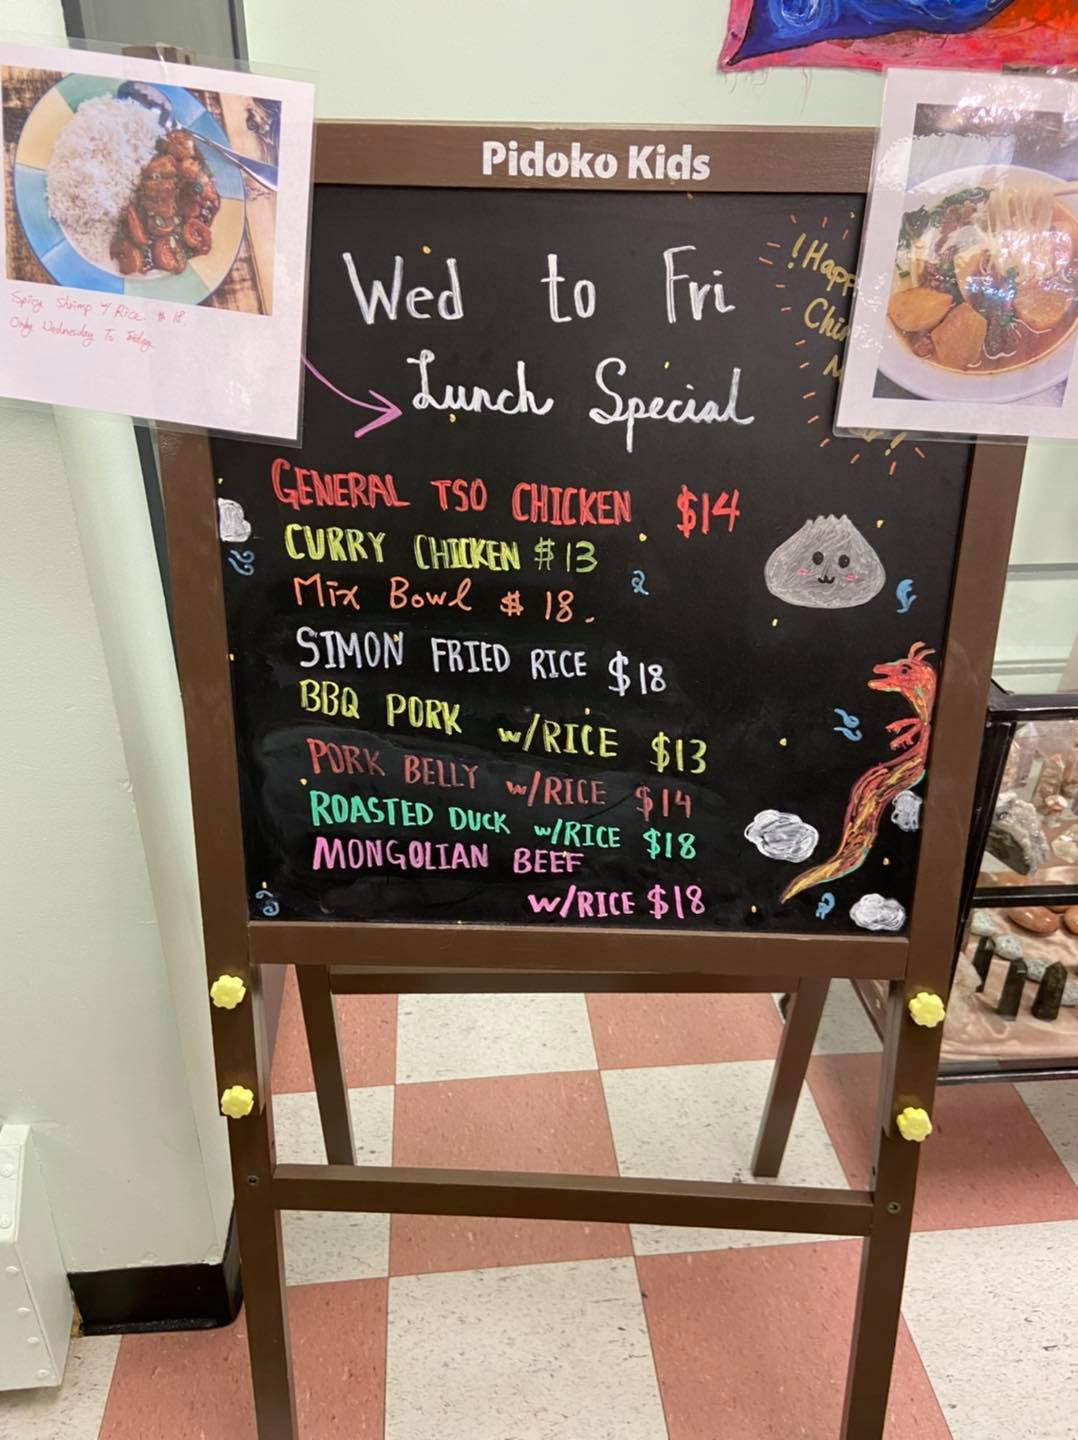 Pidoko Kids
Wed to Fri
Lunch Special
! Happ
Chi
N
!
GENERAL TSO CHICKEN $14
CURRY CHICKEN $13
Mix Bowl $18.
SIMON FRIED RICE $18
BBQ PORK w/RICE $13
PORK BELLY w/RICE $14
ROASTED DUCK w/RICE $18
MONGOLIAN BEEF
w/RICE $18
Spicy Shrimp w/ Rice $18
Only Wednesday To Friday